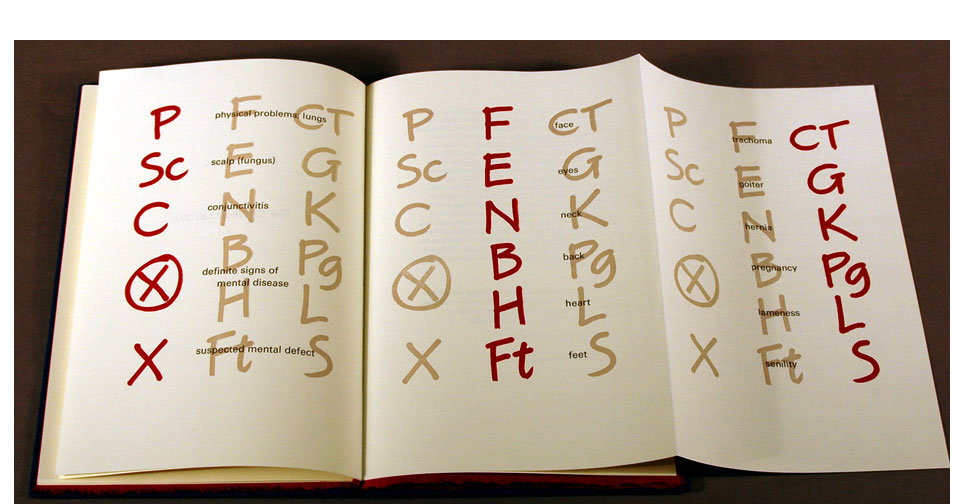 P F CT
physical problems; lungs
Sc E G
scalp (fungus)
C N K
conjunctivitis
Ⓧ B Pg
definite signs of
mental disease
H L
X Ft S
suspected mental defect
P F CT
face
Sc E G
eyes
C N K
neck
Ⓧ B Pg
back
H L
heart
X Ft S
feet
P F CT
trachoma
Sc E G
goiter
C N K
hernia
Ⓧ B Pg
pregnancy
H L
lameness
X Ft S
senility